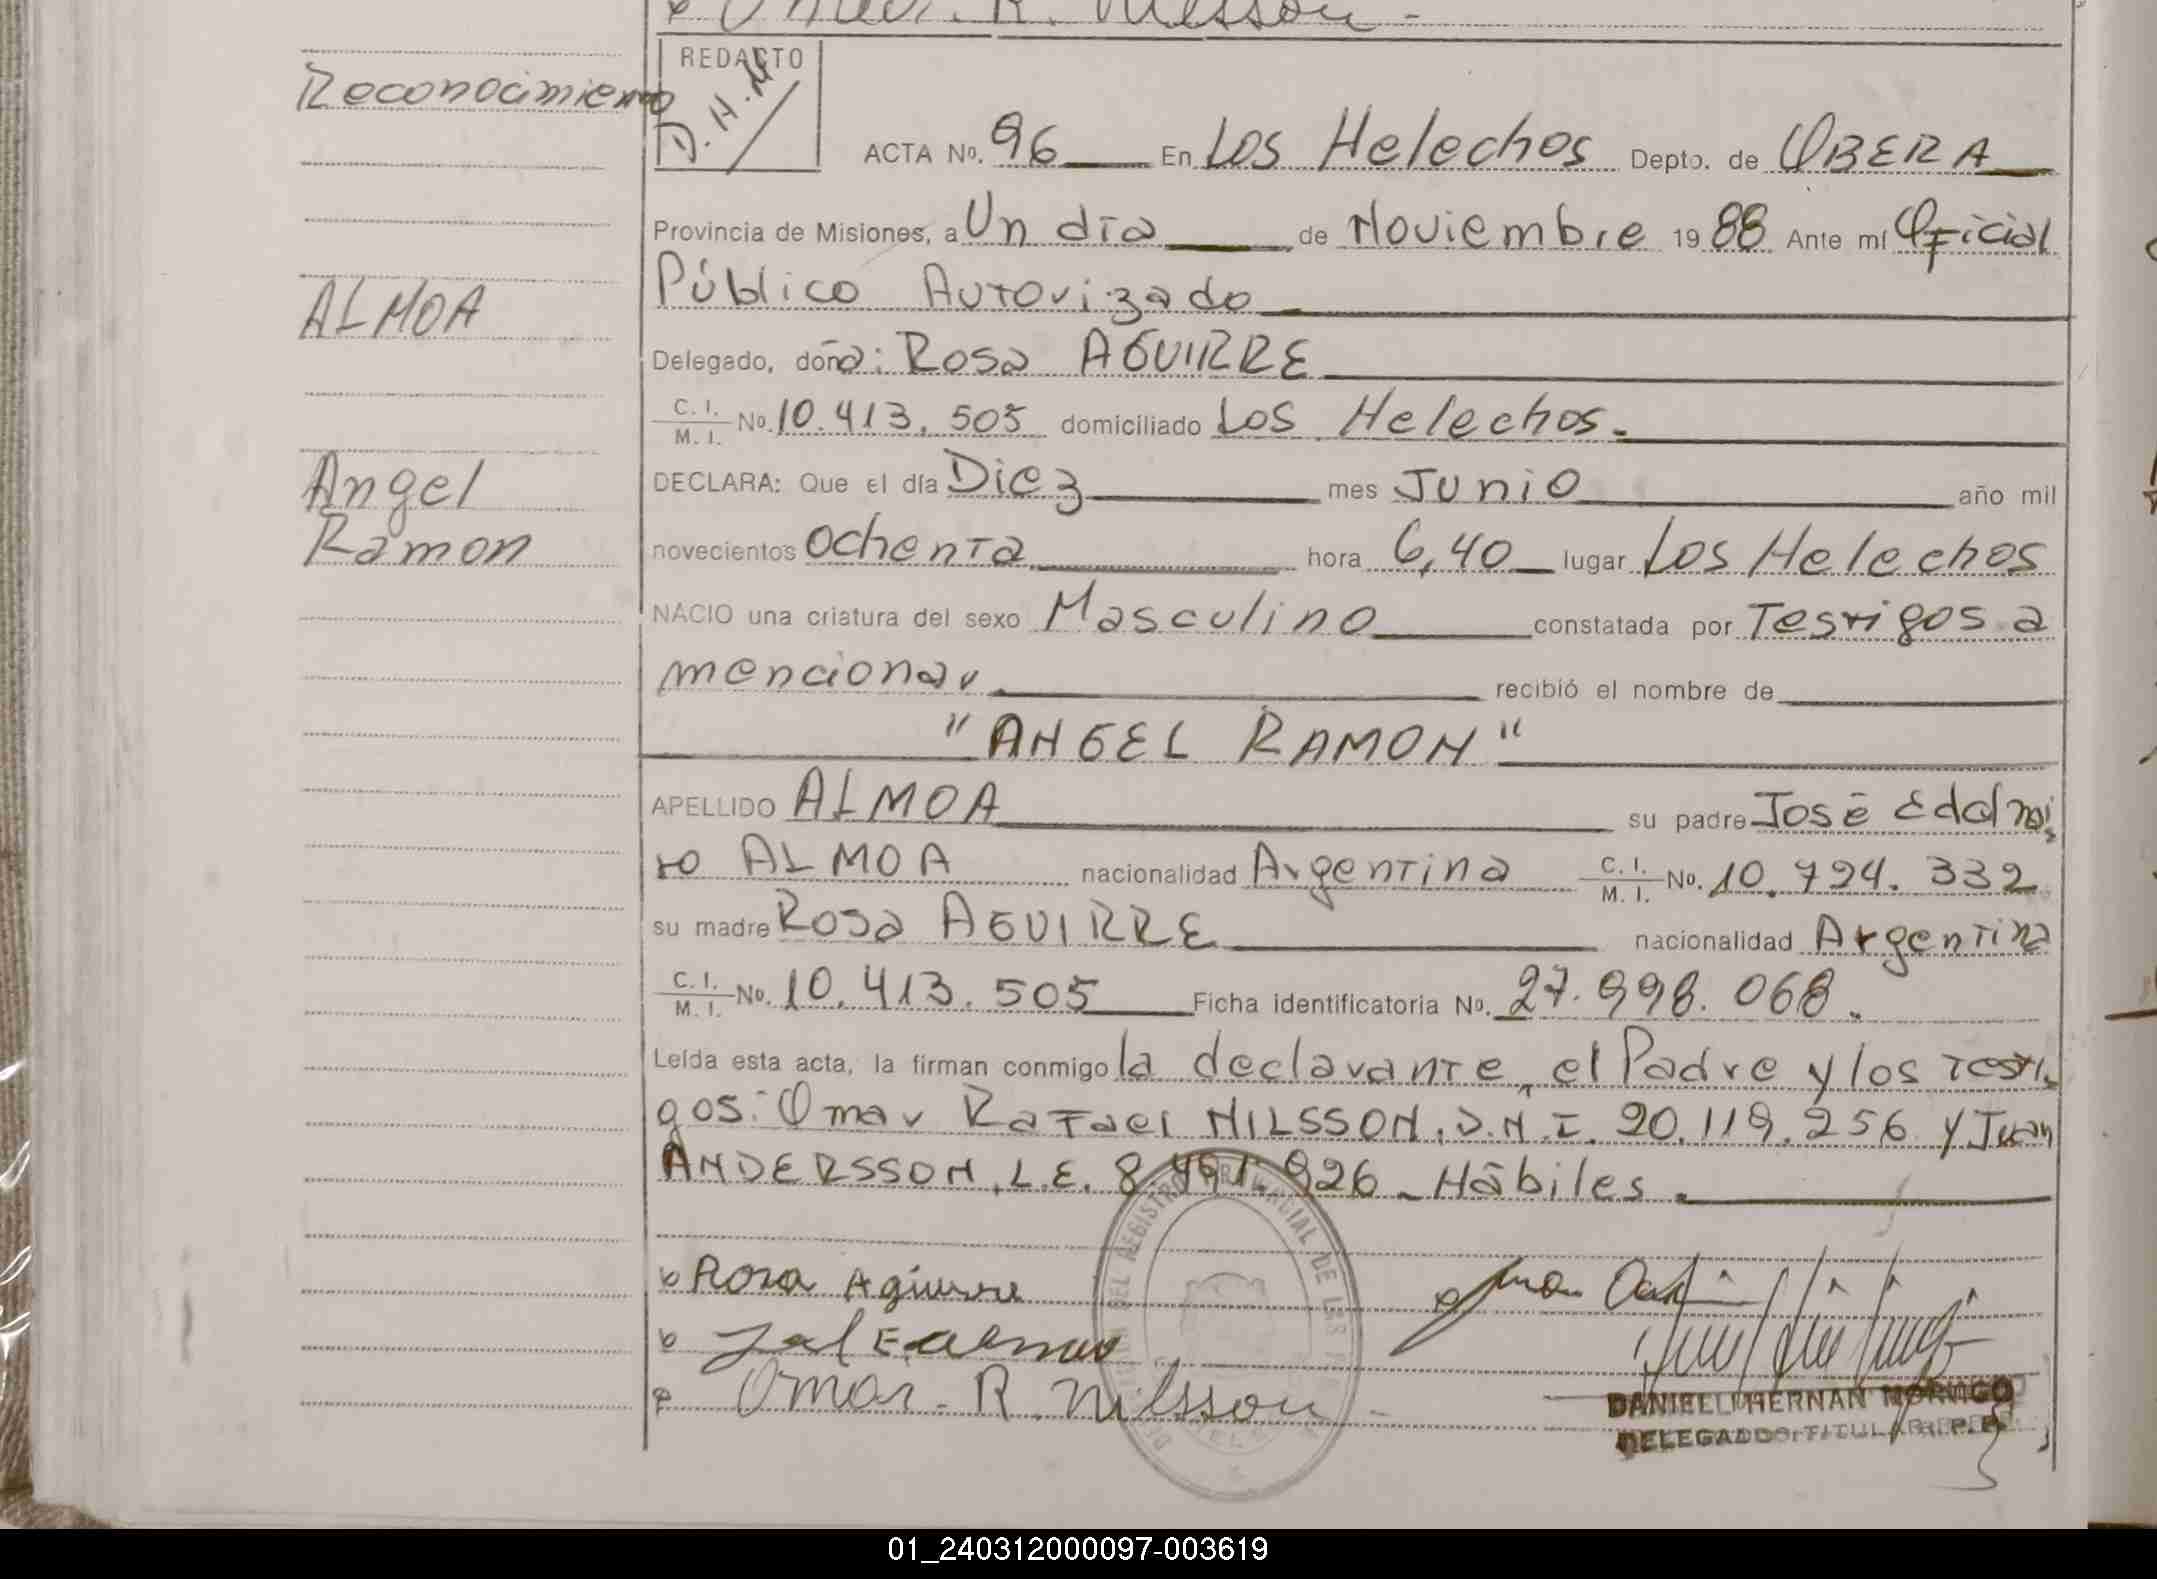 Omar. R. Nilsson.
REDACTO
D.H.N
Reconocimiento
ACTA Nº. 96 En Los Helechos Depto. de OBERA
Provincia de Misiones, a Un día de Noviembre 1988 Ante mí Oficial
Público Autorizado
ALMOA
Delegado, doña: Rosa AGUIRRE
C. I. / M. I. Nº. 10.413.505 domiciliado Los Helechos.
Angel
Ramon
DECLARA: Que el día Diez mes Junio año mil
novecientos ochenta hora 6,40 lugar Los Helechos
NACIO una criatura del sexo Masculino constatada por Testigos a
mencionar recibió el nombre de
"ANGEL RAMON"
APELLIDO ALMOA su padre José Edelmi
ro ALMOA nacionalidad Argentina C. I. / M. I. Nº. 10.794.332
su madre Rosa AGUIRRE nacionalidad Argentina
C. I. / M. I. Nº. 10.413.505 Ficha identificatoria Nº. 27.998.068.
Leída esta acta, la firman conmigo la declarante, el Padre y los testi
gos: Omar Rafael NILSSON, D.N.I. 20.119.256 y Juan
ANDERSSON, L.E. 8.491.926 - Hábiles.
Rosa Aguirre
Omar. R. Nilsson
DANIEL HERNAN NORIGO
DELEGADO TITULAR R.P.P.
01_240312000097-003619